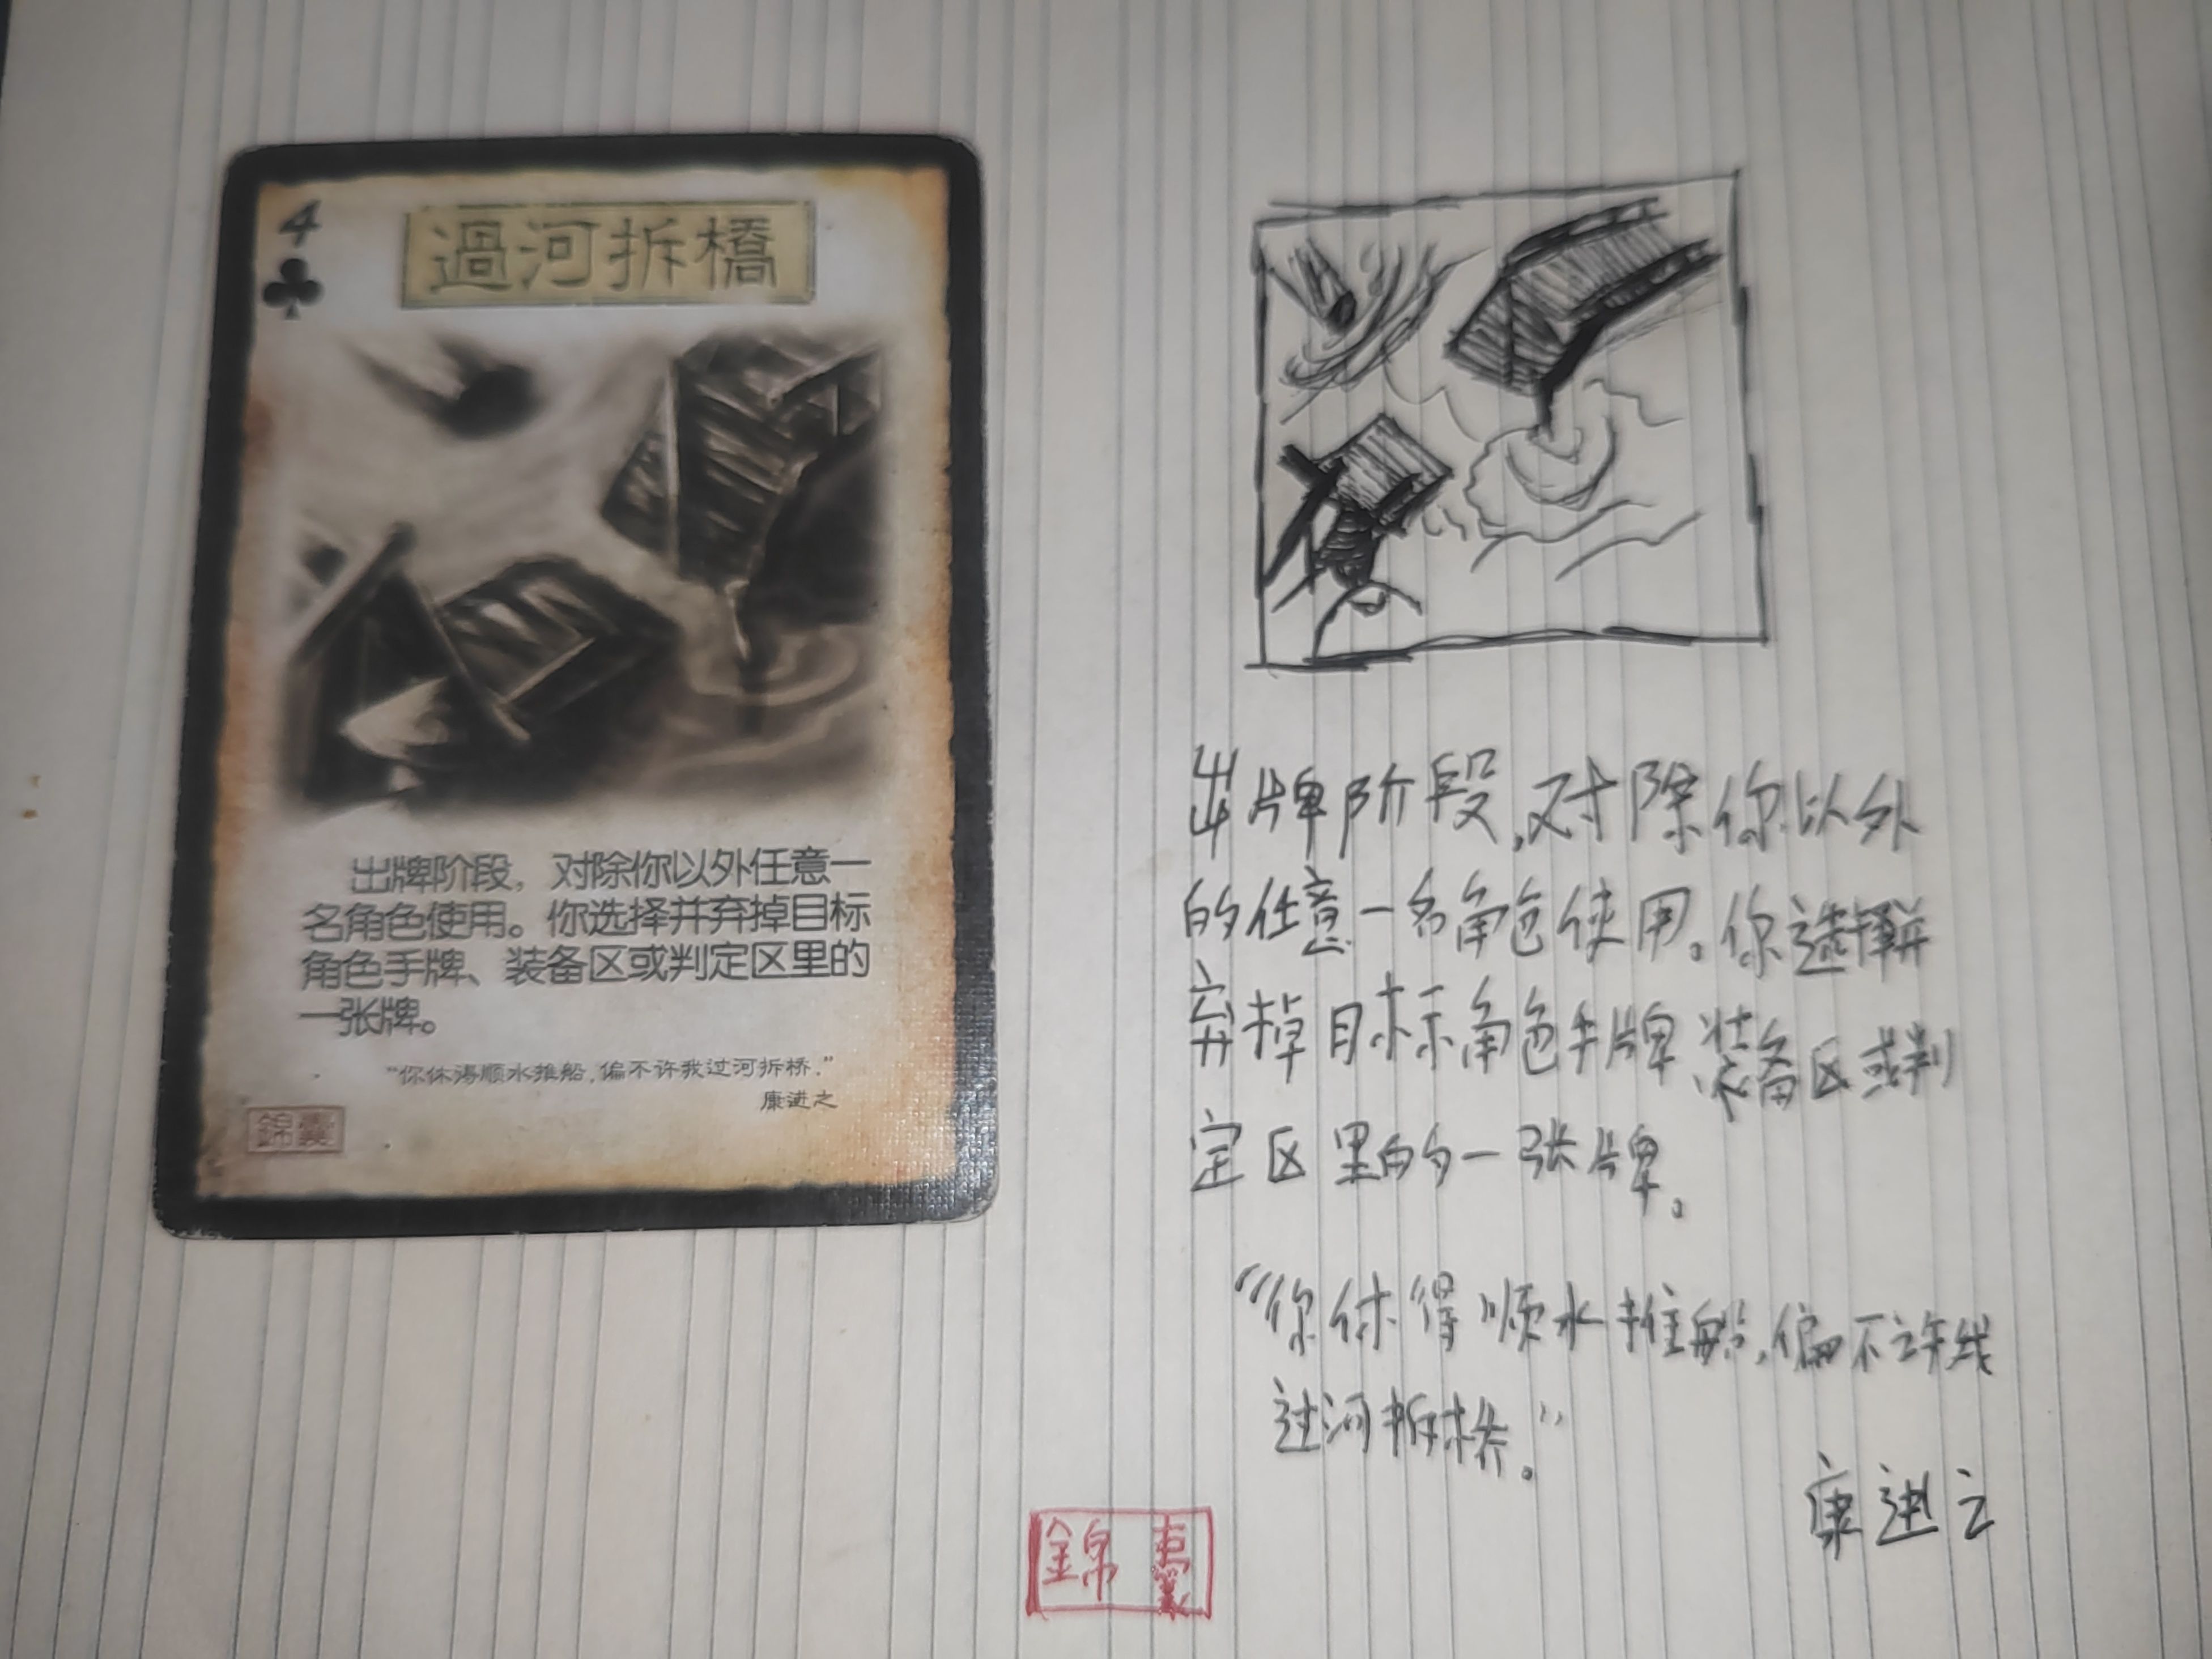 4
過河拆橋
出牌阶段，对除你以外任意一
名角色使用。你选择并弃掉目标
角色手牌、装备区或判定区里的
一张牌。
“你休得顺水推船，偏不许我过河拆桥。”
康进之
錦囊
出牌阶段，对除你以外
的任意一名角色使用。你选择并
弃掉目标角色手牌 装备区或判
定区里的一张牌。
“你休得顺水推船，偏不许我
过河拆桥。”
康进之
錦囊